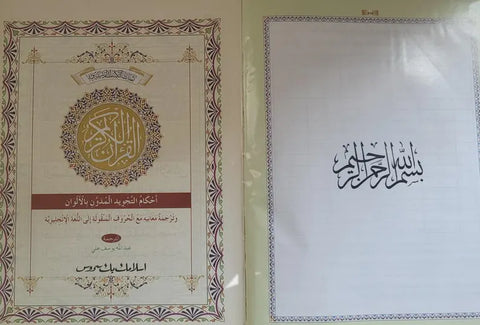 القرآن الكريم
أحكام التجويد المدوّن بالألوان
وترجمة معانيه مع الحروف المنقولة إلى اللغة الإنجليزية
الترجمة
عبد الله يوسف علي
اسلامک بک سروس
بسم الله الرحمن الرحيم